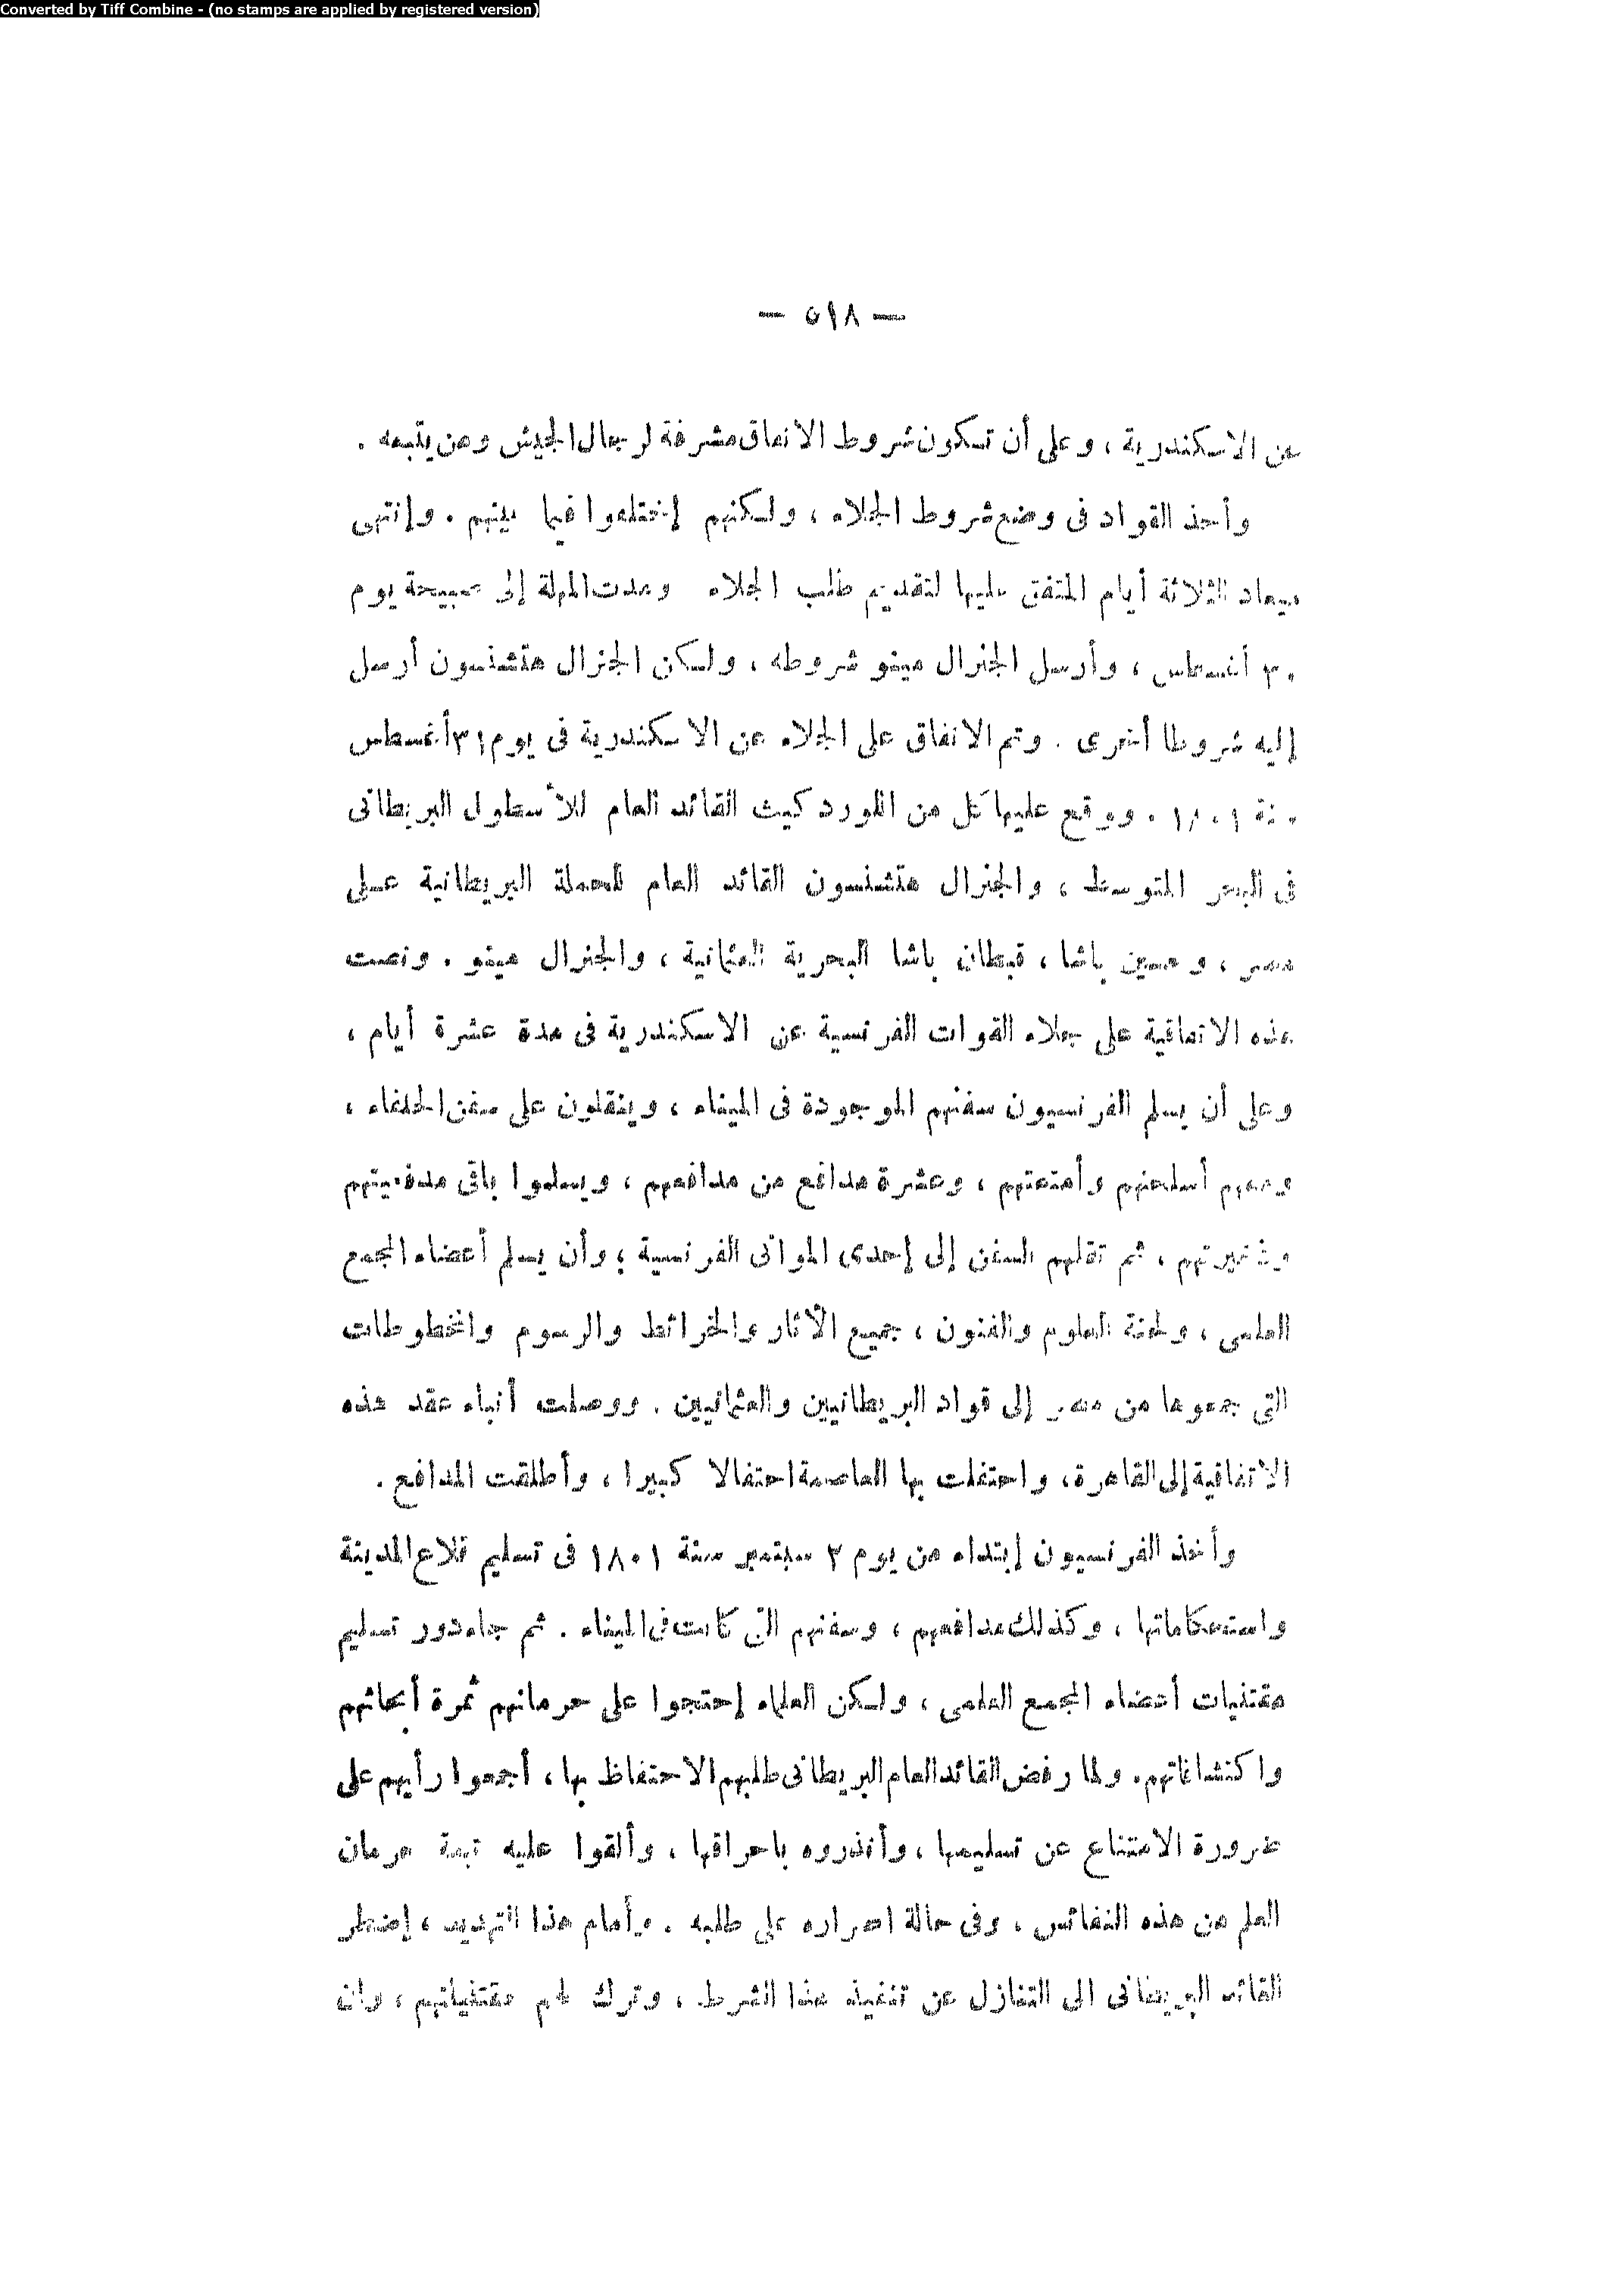 Converted by Tiff Combine - (no stamps are applied by registered version)
— ٥١٨ —
عن الاسكندرية ، وعلى أن تسكون شروط الاتفاق مشرفة لرجال الجيش ومن يتبعه .
وأخذ القواد فى وضع شروط الجلاء ، ولسكنهم إختلفوا فيما بينهم . وإنتهى
ميعاد الثلاثة أيام المتفق عليها لتقديم طلب الجلاء ومدت المهلة إلى صبيحة يوم
٣٠ أغسطس ، وأرسل الجنرال مينو شروطه ، ولسكن الجنرال هتشنسون أرسل
إليه شروطا أخرى . وتم الاتفاق على الجلاء عن الاسكندرية فى يوم ٣١ أغسطس
سنة ١٨٠١ . ووقع عليها كل من اللورد كيث القائد العام للأسطول البريطانى
فى البحر المتوسط ، والجنرال هتشنسون القائد العام للحملة البريطانية عــلى
مصر ، وحسين باشا ، قبطان باشا البحرية العثمانية ، والجنرال مينو . ونصت
هذه الاتفاقية على جلاء القوات الفرنسية عن الاسكندرية فى مدة عشرة أيام ،
وعلى أن يسلم الفرنسيون سفنهم الموجودة فى الميناء ، وينقلون على سفن الحلفاء ،
ومعهم أسلحتهم وأمتعتهم ، وعشرة مدافع من مدافعهم ، ويسلموا باقى مدفعيتهم
وذخيرتهم ، ثم تقلهم السفن إلى إحدى الموانى الفرنسية ؛ وأن يسلم أعضاء المجمع
العلمى ، ولجنة العلوم والفنون ، جميع الآثار والخرائط والرسوم والمخطوطات
التى جمعوها من مصر إلى قواد البريطانيين والعثمانيين . ووصلت أنباء عقد هذه
الاتفاقية إلى القاهرة ، واحتفلت بها العاصمة احتفالا كبيرا ، وأطلقت المدافع .
وأخذ الفرنسيون إبتداء من يوم ٢ سبتمبر سنة ١٨٠١ فى تسليم قلاع المدينة
واستحكاماتها ، وكذلك مدافعهم ، وسفنهم التى كانت فى الميناء . ثم جاء دور تسليم
مقتنيات أعضاء المجمع العلمى ، ولسكن العلماء إحتجوا على حرمانهم ثمرة أبحاثهم
واكتشافاتهم . ولما رفض القائد العام البريطانى طلبهم الاحتفاظ بها ، أجمعوا رأيهم على
ضرورة الامتناع عن تسليمها ، وأنذروه باحراقها ، وألقوا عليه تبعة حرمان
العلم من هذه النفائس ، وفى حالة اصراره على طلبه . وأمام هذا التهديد ، إضطر
القائد البريطانى الى التنازل عن تنفيذ هذا الشرط ، وترك لهم مقتنياتهم ، وان